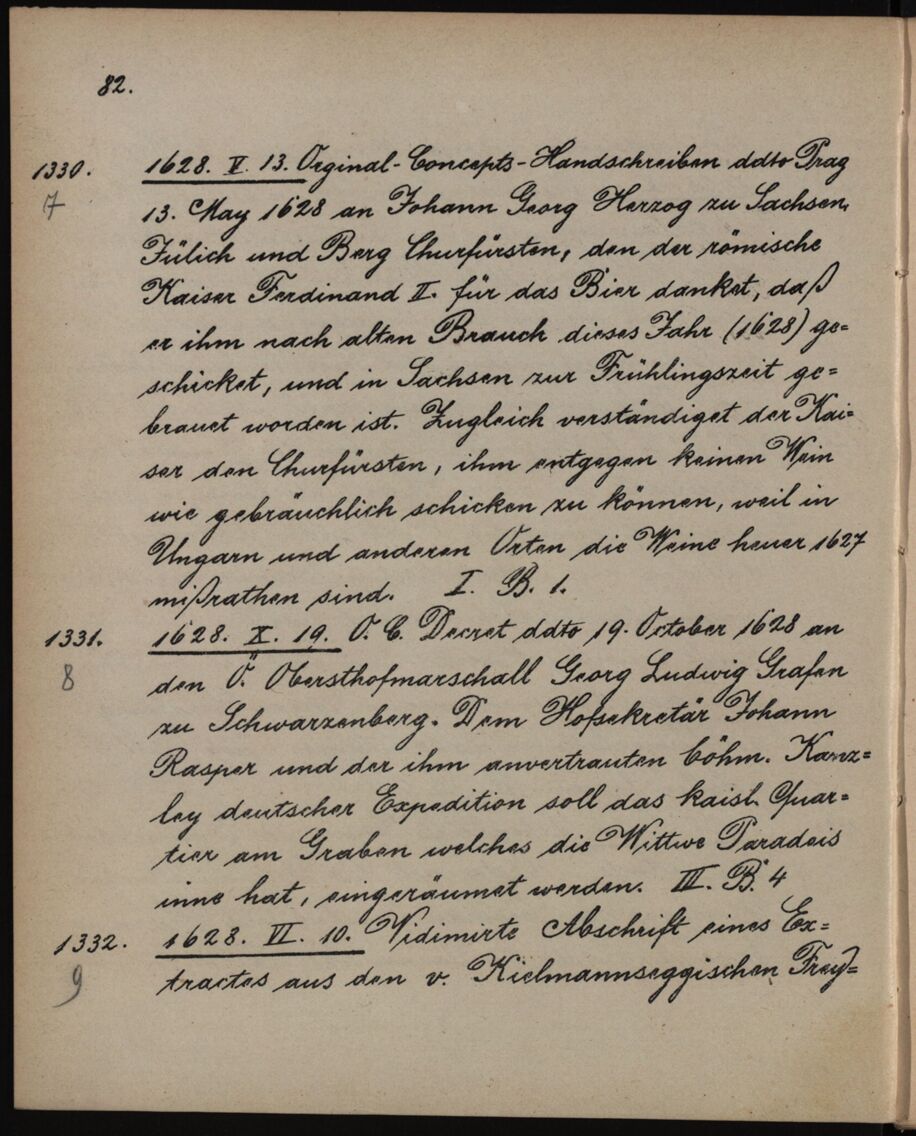 82.
1330. 1628. V. 13. Orginal-Concepts-Handschreiben ddto Prag
7 13. May 1628 an Johann Georg Herzog zu Sachsen,
Jülich und Berg Churfürsten, den der römische
Kaiser Ferdinand II. für das Bier danket, daß
er ihm nach alten Brauch dieses Jahr (1628) ge=
schicket, und in Sachsen zur Frühlingszeit ge=
brauet worden ist. Zugleich verständiget der Kai=
ser den Churfürsten, ihm entgegen keinen Wein
wie gebräuchlich schicken zu können, weil in
Ungarn und anderen Orten die Weine heuer 1627
mißrathen sind. I. B. 1.
1331. 1628. X. 19. O. C. Decret ddto 19. October 1628 an
8 den Ö. Obersthofmarschall Georg Ludwig Grafen
zu Schwarzenberg. Dem Hofsekretär Johann
Rasper und der ihm anvertrauten böhm. Kanz=
ley deutscher Expedition soll das kaisl. Quar=
tier am Graben welches die Wittwe Paradeis
inne hat, eingeräumet werden. III. B. 4
1332. 1628. VI. 10. Vidimirte Abschrift eines Ex=
9 tractes aus den v. Kielmannseggischen Frey=